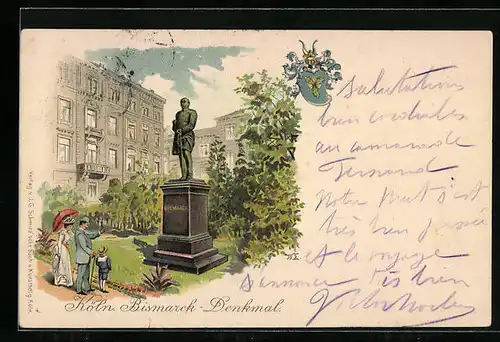 BISMARCK
Köln. Bismarck-Denkmal.
Verlag v. J.G. Schmitz'sche Buch- u. Kunsthdlg. Köln.
Salutations
bien cordiales
au camarade
Fernand
Notre s'est
très bien passée
et le voyage
s'annonce très bien